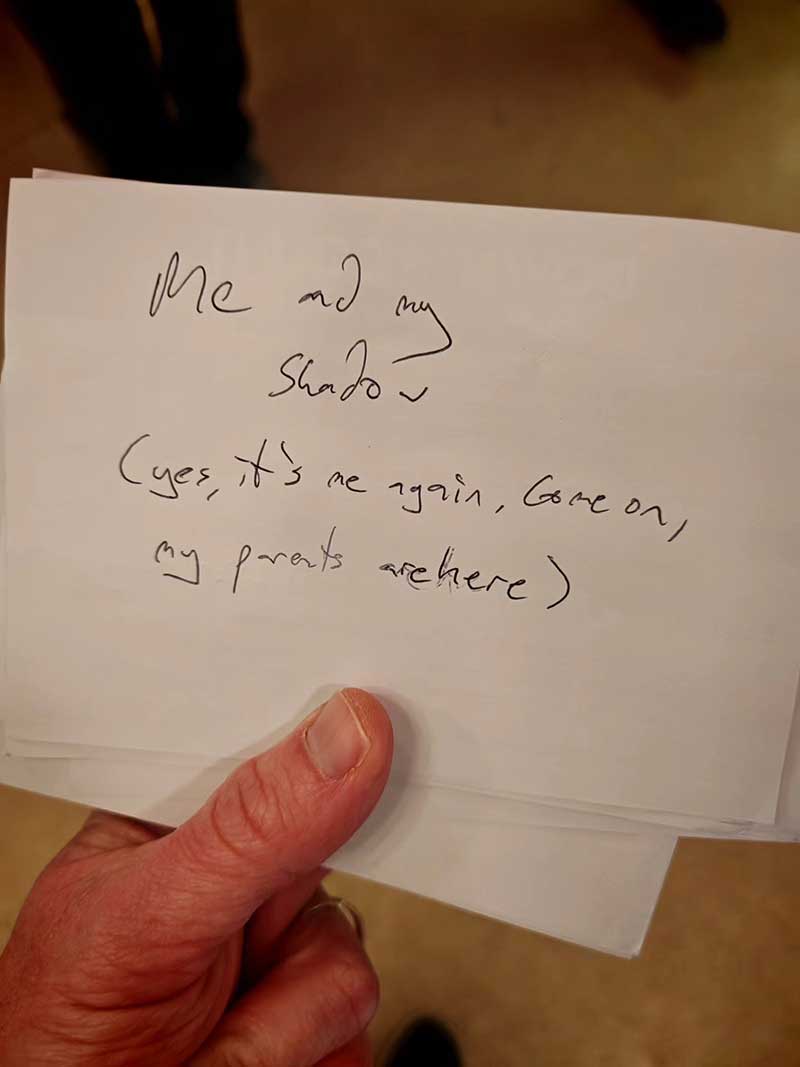 Me and my
Shadow
(yes, it's me again, Come on,
my parents are here)